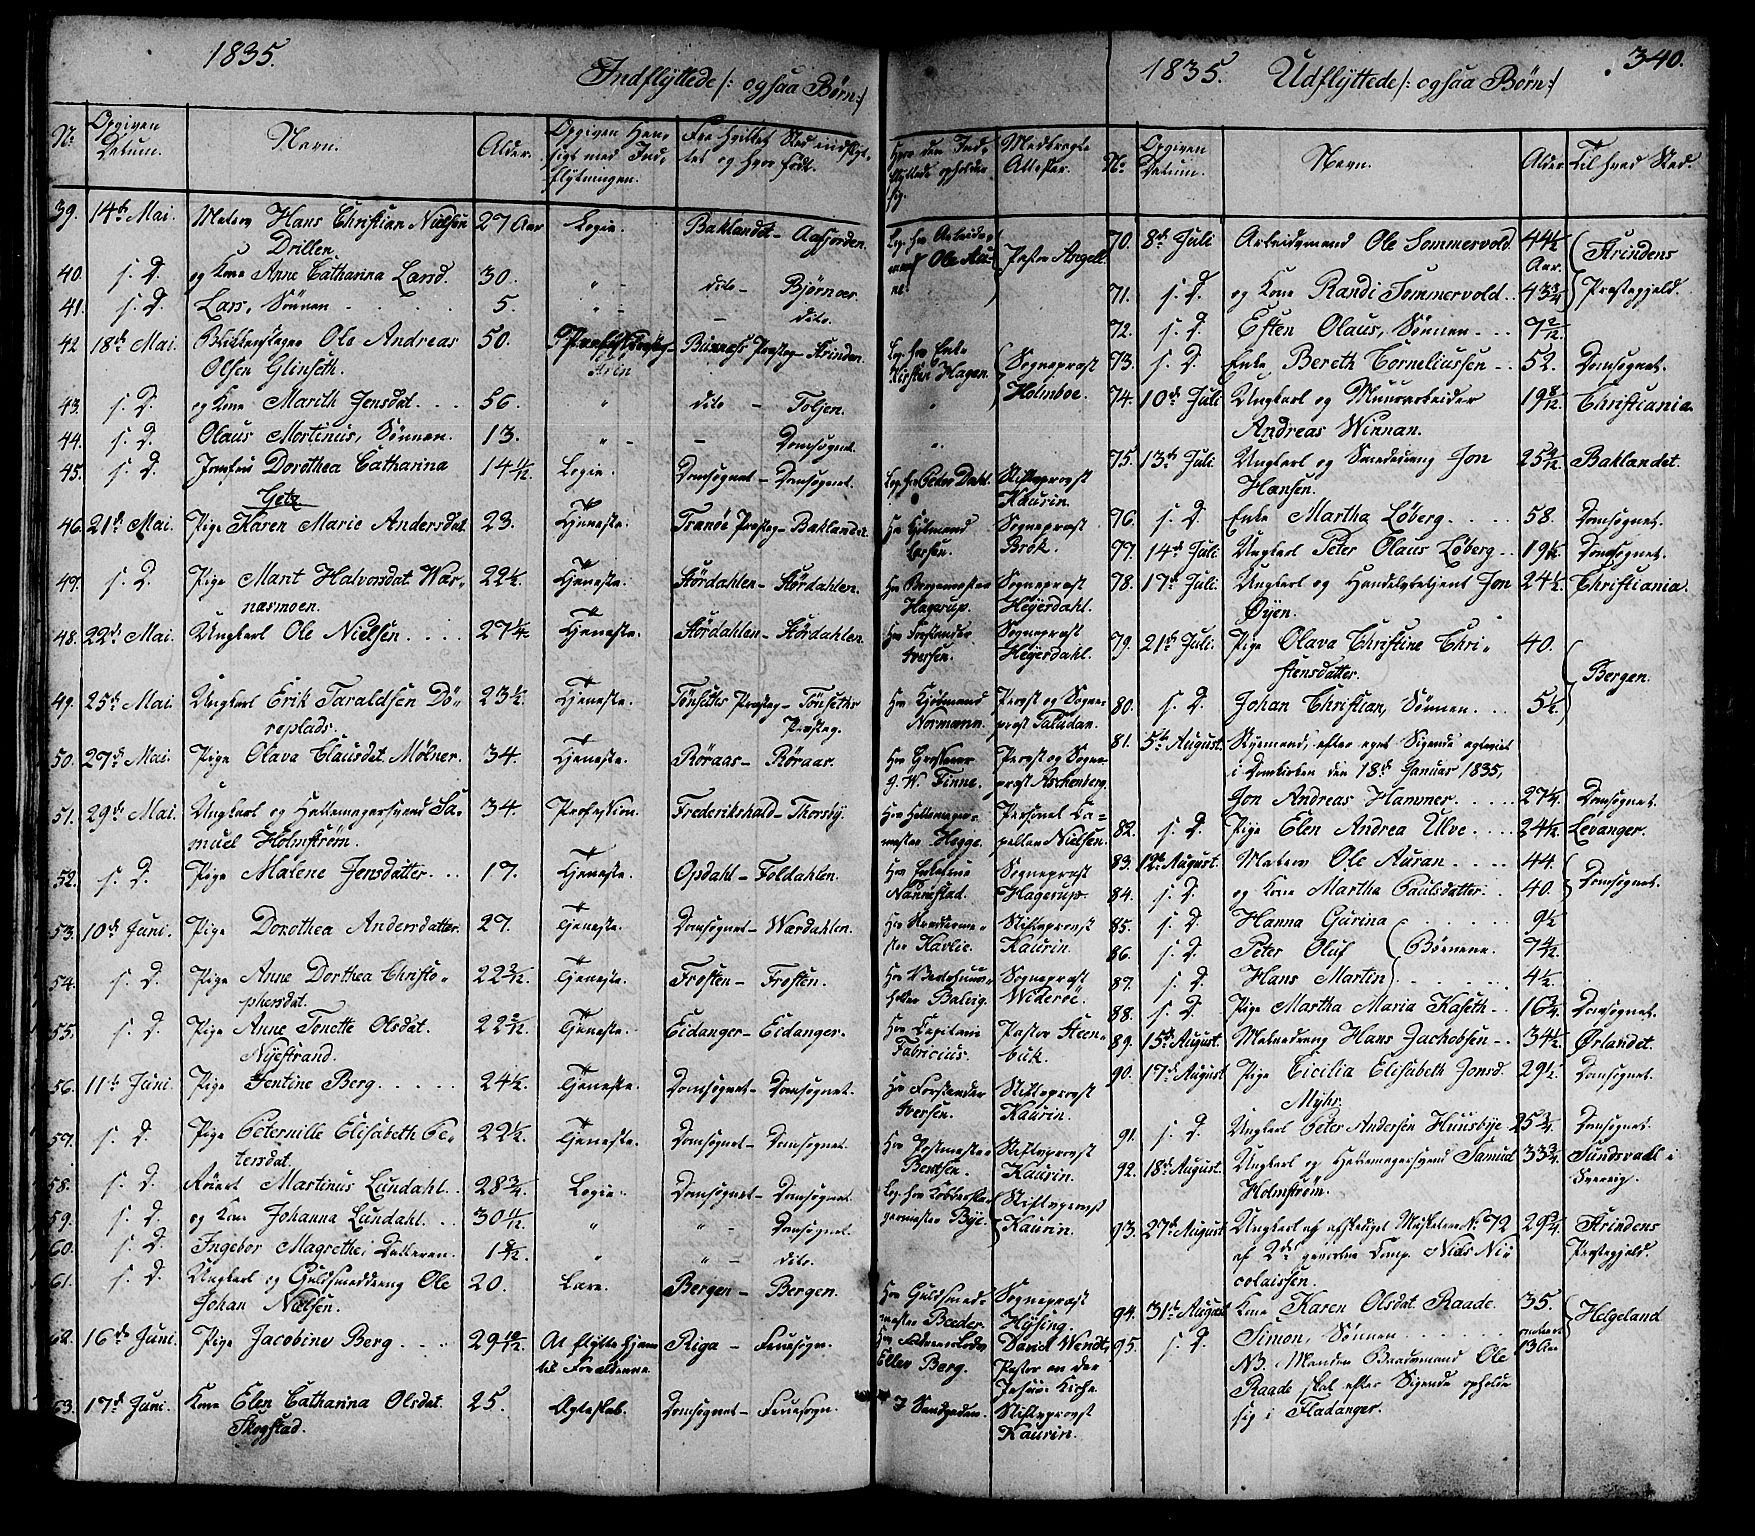 1835.
Indflÿttede /: ogsaa Børn :/
No
Opgiven Datum.
Navn.
Alder.
Opgiven Hensigt med Indflytningen.
Fra hvilket Sted indflyttet og hvor født.
Hvor den Indflyttede opholder sig.
Medbragte Attester.
39. 14de Mai. Matros Hans Christian Nielsen Drillen. 27 Aar Logie. Baklandet – Aafjorden. Log. hos Arbeidsmand Ole Aune. Pastor Angell
40. s. D. og Kone Anne Catharina Larsd. 30. " – dito – Bjørnoer.
41. s. D. Lars, Sønnen . . . . 5. " – – dito.
42. 18de Mai. Ole Andreas Olsen Glinseth. 50. Præstg – Strinden. Log. hos Enke Kirsten Hagen. Sogneprest Holmboe.
43. s. D. og Kone Marith Jensdat. . . . 56. " dito – Toljen. "
44. s. D. Olaus Mortinus, Sønnen. 13. " – – Domsognet. "
45. s. D. Jomfru Dorothea Catharina Getz 14 1/2. Logie. Domsognet – Domsognet. Log. hos Peder Dahl. Stiftsprovst Kaurin.
46. 21de Mai. Pige Karen Marie Andersdat. 23. Tjeneste. Tranöe Præsteg – Baklandet. Hos Kjøbmand Larsen. Sogneprest Brok.
47. s. D. Pige Marit Halvorsdat. Wærnæsmoen. 22 1/2. Tjeneste. Stördahlen – Stördahlen. Hos Borgermester Hagerup. Sogneprest Heyerdahl.
48. 22de Mai. Ungkarl Ole Nielsen . . . . 27 1/4. Tjeneste. Stördahlen – Stördahlen. Hos Forstander Iversen. Sogneprest Heyerdahl.
49. 25de Mai. Ungkarl Erik Taraldsen Döreplads. 23 1/2. Tjeneste. Tönsetts Præsteg – Tönsetts Præsteg. Hos Kjøbmand Normann. Provst og Sogneprest Paludan.
50. 27de Mai. Pige Olava Clausdat. Mölner. 34. Tjeneste. Röraas – Röraas. Hos J. W. Finne. Provst og Sogneprest Aschenberg.
51. 29de Mai. Ungkarl og Hattemagersvend Samuel Holmstrøm. 34. Profession. Frederikshald – Thorsbÿ. Hos Hattemagermester Hegge. Personel Capellan Nielsen.
52. s. D. Pige Malene Jensdatter. . . 17. Tjeneste. Opdahl – Foldahlen. Hos Nannestad. Sogneprest Hagerup.
53. 10de Juni. Pige Dorothea Andersdatter. 27. Tjeneste. Domsognet – Wærdahlen. Hos Havlie. Stiftsprovst Kaurin.
54. s. D. Pige Anne Dorthea Christophersdat. 22 3/12. Tjeneste. Frosten – Frosten. Hos Balvig. Sogneprest Wideröe.
55. s. D. Pige Anne Tonette Olsdat. Nÿestrand. 22 5/12. Tjeneste. Eidanger – Eidanger. Hos Capitain Fabricius. Pastor Steenbuk.
56. 11de Juni. Pige Jentine Berg . . . . . 24 1/2. Tjeneste. Domsognet – Domsognet. Hos Forstander Iversen. Stiftsprovst Kaurin.
57. s. D. Pige Peternille Elisabeth Petersdat. 22 1/2. Tjeneste. Domsognet – Domsognet. Hos Postmester Beretsen. Stiftsprovst Kaurin.
58. s. D. Martinus Lundahl. . 28 3/4. Logie. Domsognet – Domsognet. Log. hos Kobberslagermester Bÿe. Stiftsprovst Kaurin.
59. s. D. og Kone Johanna Lundahl. . . 30 11/12. " " – Domsognet.
60. s. D. Ingebor Magrethe, Datteren. 1 8/12. " " – dito.
61. s. D. Ungkarl og Guldsmeddreng Ole Johan Nielsen. 20. Lære. Bergen – Bergen. Hos Guldsmedmester Bøeder. Sogneprest Hÿsing.
62. 16de Juni. Pige Jacobine Berg . . . . 29 10/12. At flytte hjem til Forældrene. Riga – Fruesogn. Hos Eller Berg. David Wendt, Pastor ved der Jesus Kirche
63. 17de Juni. Kone Elen Catharina Olsdat. Skogstad. 25. Ægteskab. Domsognet – Fruesogn. I Sandgaden. Stiftsprovst Kaurin.
1835. Udflÿttede /: ogsaa Børn :/
340.
No
Opgiven Datum.
Navn.
Alder
Til hvad Sted.
70. 8de Juli Arbeidsmand Ole Sommervold. 44 1/2 Aar. Strindens Præstegjeld.
71. s. D. og Kone Randi Sommervold. . 43 3/4
72. s. D. Esten Olaus, Sønnen . . . 7 2/12.
73. s. D. Enke Bereth Corneliussen . . 52. Domsognet.
74. 10de Juli Ungkarl og Muurarbeider Andreas Winnan. 19 8/12. Christiania.
75. 13de Juli. Ungkarl og Smeddreng Jon Hansen. 25 4/12. Baklandet.
76. s. D. Enke Martha Løberg . . . . 58. Domsognet.
77. 14de Juli. Ungkarl Peter Olaus Løberg . . 19 1/2. Domsognet.
78. 17de Juli. Ungkarl og Handelsbetjent Jon Øÿen. 24 1/2. Christiania.
79. 21de Juli. Pige Olava Christine Christensdatter. 40. Bergen.
80. s. D. Johan Christian, Sønnen. . . 5 1/2.
81. 5te August. Ryemand, efter eget Sigende ægteviet i Domkirken den 18de Januar 1835, Jon Andreas Hammer. . . . . 27 1/4. Domsognet.
82. s. D. Pige Elen Andrea Ulve. . . . 24 1/2. Levanger.
83. 12te August. Matros Ole Auran . . . . 44. Domsognet.
84. s. D. og Kone Martha Paulsdatter. . 40.
85. s. D. Hanna Gurina . . . . . . 9 1/2
86. s. D. Peter Oluf Børnene. 7 4/12.
87. s. D. Hans Martin . . . . . . 4 1/2.
88. s. D. Pige Martha Maria Kaseth . . 16 3/4. Domsognet.
89. 15de August. Hans Jachobsen . . 34 1/2. Ørlandet.
90. 17de August Pige Cicilia Elisabeth Jonsd. Mÿhr. 29 1/2. Domsognet.
91. s. D. Ungkarl Peter Andersen Huusbÿe. 25 3/4. Domsognet.
92. 18de August. Ungkarl og Hattemagersvend Samuel Holmström. 33 3/4. Sundsvall i Sverrig.
93. 27de August Ungkarl af afskediget Musketer No 72 af 2det Comp. Niels Nicolaissen. 29 9/12. Strindens Præstegjeld.
94. 31te August Kone Karen Olsdat. Raade. 35. Helgeland
95. s. D. Simon, Sønnen . . . . . . 13 Aar
NB. Manden Baadsmand Ole Raade skal efter Sigende opholde sig i Fladanger.